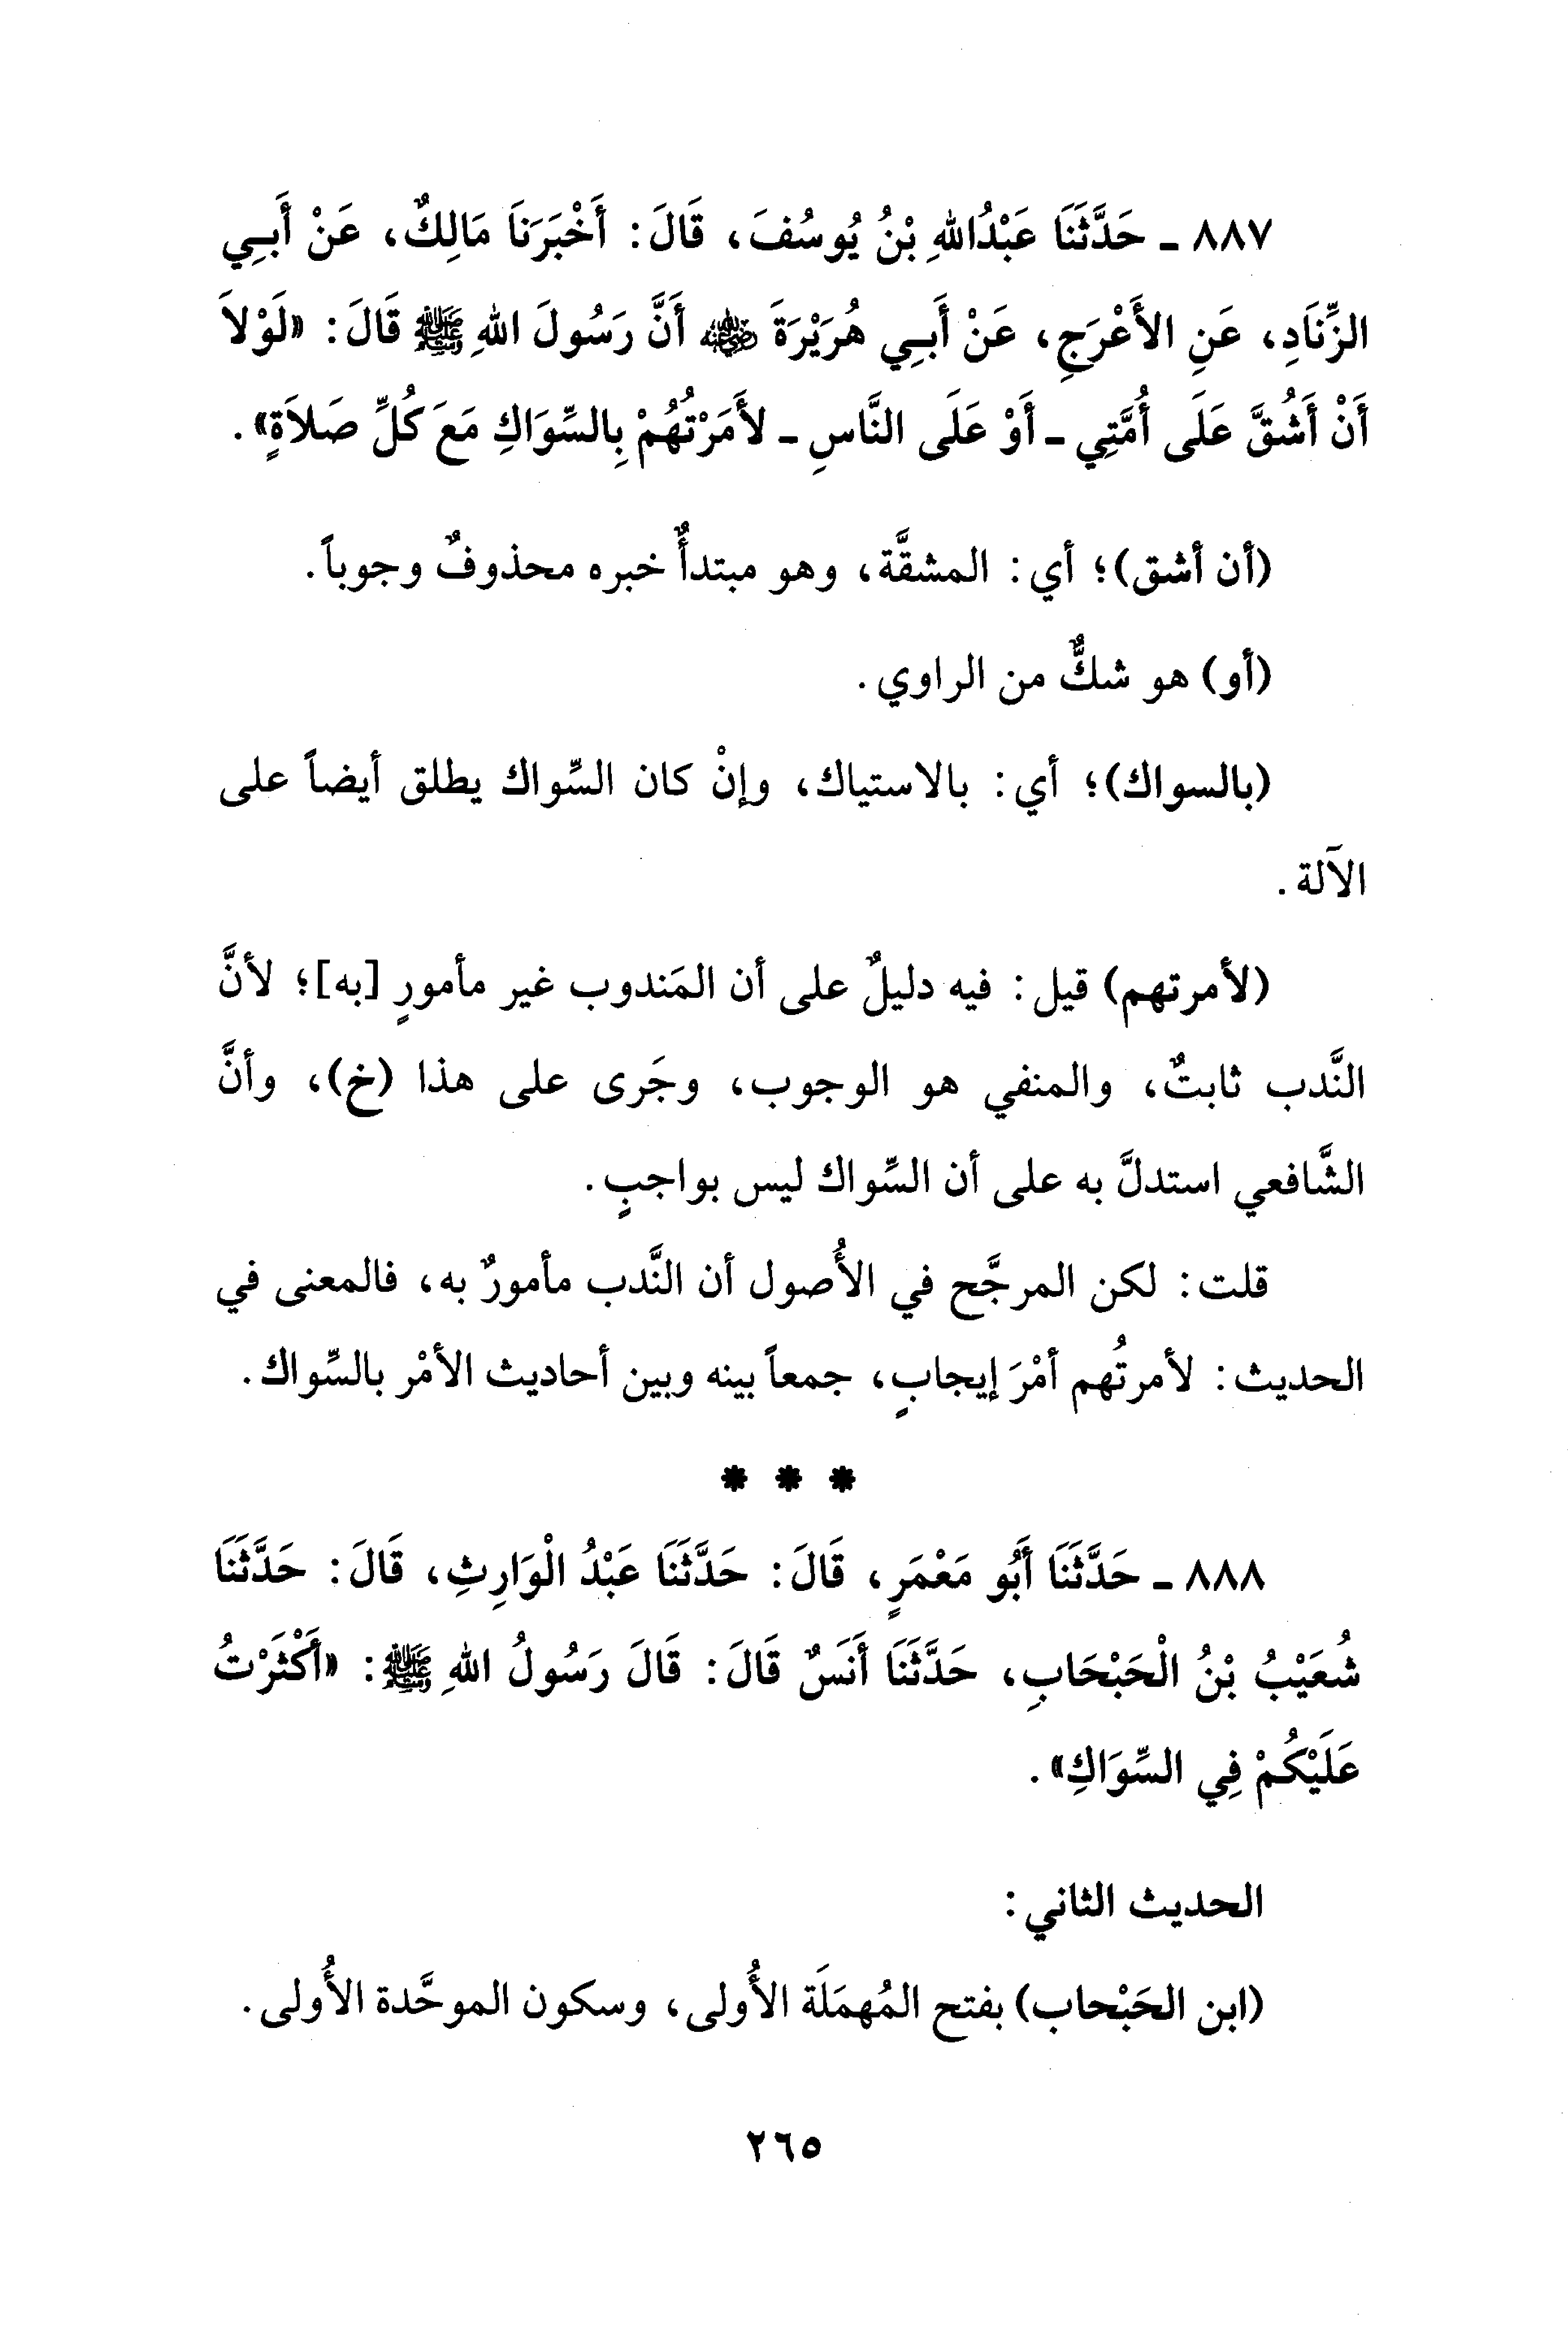 ٨٨٧ - حَدَّثَنَا عَبْدُاللهِ بْنُ يُوسُفَ، قَالَ: أَخْبَرَنَا مَالِكٌ، عَنْ أَبِي
الزِّنَادِ، عَنِ الأَعْرَجِ، عَنْ أَبِي هُرَيْرَةَ رضي الله عنه أَنَّ رَسُولَ اللهِ ﷺ قَالَ: «لَوْلاَ
أَنْ أَشُقَّ عَلَى أُمَّتِي - أَوْ عَلَى النَّاسِ - لأَمَرْتُهُمْ بِالسِّوَاكِ مَعَ كُلِّ صَلاَةٍ».
(أن أشق)؛ أي: المشقَّة، وهو مبتدأٌ خبره محذوفٌ وجوباً.
(أو) هو شكٌّ من الراوي.
(بالسواك)؛ أي: بالاستياك، وإنْ كان السِّواك يطلق أيضاً على
الآلة.
(لأمرتهم) قيل: فيه دليلٌ على أن المَندوب غير مأمورٍ [به]؛ لأنَّ
النَّدب ثابتٌ، والمنفي هو الوجوب، وجَرى على هذا (خ)، وأنَّ
الشَّافعي استدلَّ به على أن السِّواك ليس بواجبٍ.
قلت: لكن المرجَّح في الأُصول أن النَّدب مأمورٌ به، فالمعنى في
الحديث: لأمرتُهم أمْرَ إيجابٍ، جمعاً بينه وبين أحاديث الأمْر بالسِّواك.
* * *
٨٨٨ - حَدَّثَنَا أَبُو مَعْمَرٍ، قَالَ: حَدَّثَنَا عَبْدُ الْوَارِثِ، قَالَ: حَدَّثَنَا
شُعَيْبُ بْنُ الْحَبْحَابِ، حَدَّثَنَا أَنَسٌ قَالَ: قَالَ رَسُولُ اللهِ ﷺ: «أَكْثَرْتُ
عَلَيْكُمْ فِي السِّوَاكِ».
الحديث الثاني:
(ابن الحَبْحاب) بفتح المُهمَلَة الأُولى، وسكون الموحَّدة الأُولى.
٢٦٥